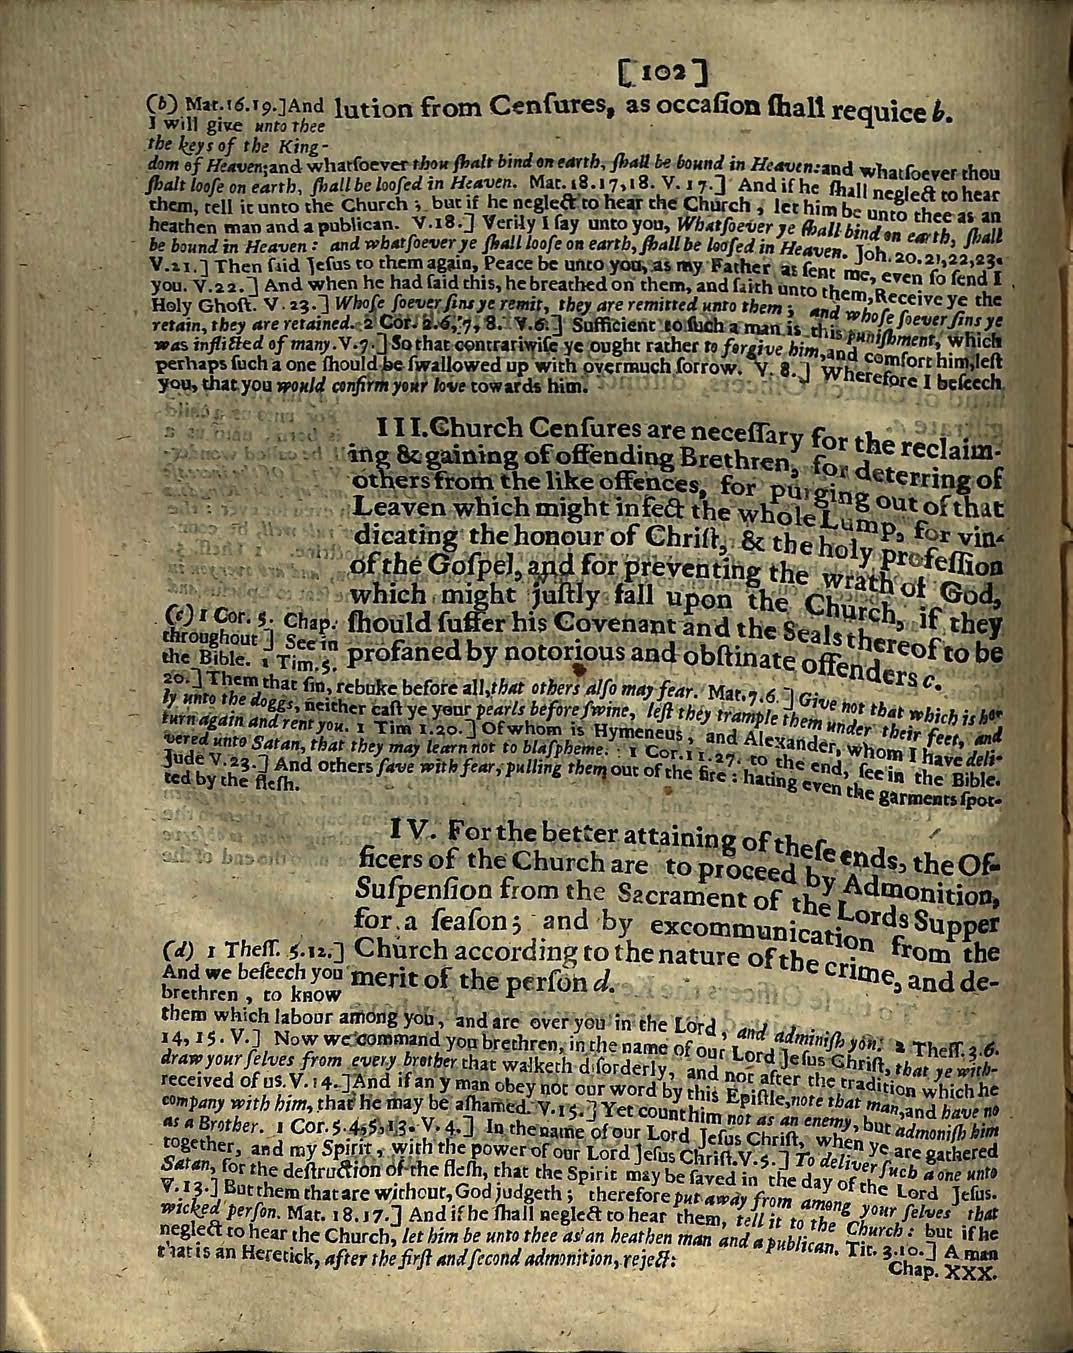 [102]
(b) Mat.16.19.]And lution from Cenſures, as occaſion ſhall requice b.
I will give unto thee
the keys of the King-
dom of Heaven;and whatſoever thou ſhalt bind on earth, ſhall be bound in Heaven:and whatſoever thou
ſhalt looſe on earth, ſhall be looſed in Heaven. Mat.18.17,18. V. 17.] And if he ſhall neglect to hear
them, tell it unto the Church; but if he neglect to hear the Church, let him be unto thee as an
heathen man and a publican. V.18.] Verily I ſay unto you, Whatſoever ye ſhall bind on earth, ſhall
be bound in Heaven: and whatſoever ye ſhall looſe on earth, ſhall be looſed in Heaven. Joh.20.21,22,23.
V.21.] Then ſaid Jeſus to them again, Peace be unto you, as my Father as ſent me, even ſo ſend I
you. V.22.] And when he had ſaid this, he breathed on them, and ſaith unto them,Receive ye the
Holy Ghoſt. V. 23.] Whoſe ſoever ſins ye remit, they are remitted unto them; and whoſe ſoever ſins ye
retain, they are retained. 2 Cor. 2.6, 7, 8. V.6.] Sufficient to ſuch a man is this puniſhment, which
was inflicted of many.V.7.] So that contrariwiſe ye ought rather to forgive him,and comfort him,leſt
perhaps ſuch a one ſhould be ſwallowed up with overmuch ſorrow. V. 8.] Wherefore I beſeech
you, that you would confirm your love towards him.
III.Church Cenſures are neceſſary for the reclaim-
ing & gaining of offending Brethren, for deterring of
others from the like offences, for purging out of that
Leaven which might infect the whole Lump, for vin-
dicating the honour of Chriſt, & the holy profeſſion
of the Goſpel, and for preventing the wrath of God,
which might juſtly fall upon the Church, if they
(c) 1 Cor. 5. Chap. ſhould ſuffer his Covenant and the Seals thereof to be
throughout] See in
the Bible. 1 Tim.5. profaned by notorious and obſtinate offenders c.
20.] Them that ſin, rebuke before all,that others alſo may fear. Mat.7.6.] Give not that which is ho-
ly unto the doggs, neither caſt ye your pearls before ſwine, leſt they trample them under their feet, and
turn again and rent you. 1 Tim 1.20.] Of whom is Hymeneus, and Alexander, whom I have deli-
vered unto Satan, that they may learn not to blaſpheme. 1 Cor.11.27. to the end, ſee in the Bible.
Jude V.23.] And others ſave with fear, pulling them out of the fire: hating even the garments ſpot-
ted by the fleſh.
IV. For the better attaining of theſe ends, the Of-
ficers of the Church are to proceed by Admonition,
Suſpenſion from the Sacrament of the Lords Supper
for a ſeaſon; and by excommunication from the
(d) 1 Theſſ. 5.12.] Church according to the nature of the crime, and de-
And we beſeech you merit of the perſon d.
brethren, to know
them which labour among you, and are over you in the Lord, and adminiſh you. 2 Theſſ.3.6.
14, 15. V.] Now we command you brethren, in the name of our Lord Jeſus Chriſt, that ye with-
draw your ſelves from every brother that walketh diſorderly, and not after the tradition which he
received of us. V.14.]And if any man obey not our word by this Epiſtle,note that man,and have no
company with him, that he may be aſhamed. V.15.] Yet count him not as an enemy, but admoniſh him
as a Brother. 1 Cor.5.4,5,13. V.4.] In the name of our Lord Jeſus Chriſt, when ye are gathered
together, and my Spirit, with the power of our Lord Jeſus Chriſt.V.5.] To deliver ſuch a one unto
Satan, for the deſtruction of the fleſh, that the Spirit may be ſaved in the day of the Lord Jeſus.
V.13.] But them that are without, God judgeth; therefore put away from among your ſelves that
wicked perſon. Mat. 18.17.] And if he ſhall neglect to hear them, tell it to the Church: but if he
neglect to hear the Church, let him be unto thee as an heathen man and a publican. Tit. 3.10.] A man
that is an Heretick, after the firſt and ſecond admonition, reject:
Chap. XXX.